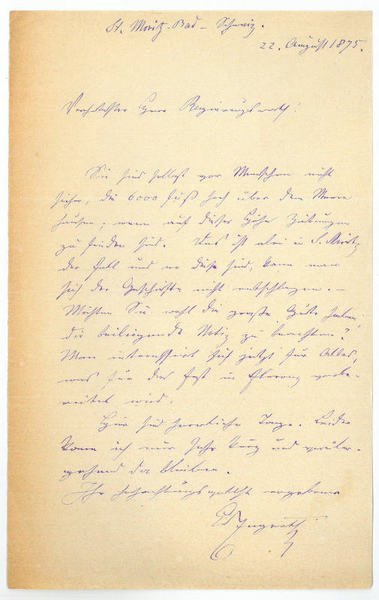 St. Moritz-Bad – Schweiz.
22. August 1875.
Verehrtester Herr Regierungsrath!
Sie sind selbst vor Menschen nicht
sicher, die 6000 Fuß hoch über dem Meere
hausen, wenn auf dieser Höhe Zeitungen
zu finden sind. Das ist aber in S. Moritz
der Fall und wo diese sind, kann man
sich der Geschäfte nicht entschlagen. –
Möchten Sie wohl die große Güte haben
die beiliegende Notiz zu beachten?
Man interessirt sich jetzt für Alles,
was für das Fest in Florenz vorbe-
reitet wird.
Hier sind herrliche Tage. Leider
kann ich nur sehr kurz und vorüber-
gehend da bleiben.
Ihr hochachtungsvollst ergebener